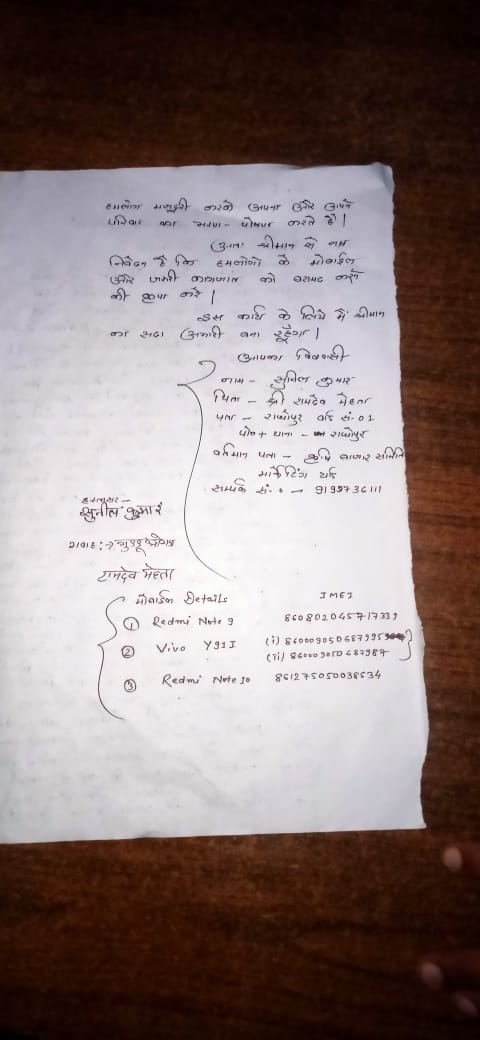 हमलोग मजदूरी करके अपना और अपने
परिवार का भरण - पोषण करते है |
अतः श्रीमान से नम्र
निवेदन है कि हमलोगो के मोबाईल
और जरूरी कागजात को बरामद करने
की कृपा करे |
इस कार्य के लिये मैं श्रीमान
का सदा अभारी बना रहूँगा |
आपका विश्वासी
नाम - सुनिल कुमार
पिता - श्री रामदेव मेहता
पता - राघोपुर वार्ड सं. 01
पो० + थाना - राघोपुर
वर्तमान पता - कृषि बाजार समिति
मार्केटिंग यार्ड
सम्पर्क सं. ० - 9199736111
हस्ताक्षर -
सुनील कुमार
गवाह :→
रामदेव मेहता
मोबाईल Details IMEI
① Redmi Note 9 860802045717339
② Vivo Y91I (i) 860009050687995
(ii) 860009050687987
③ Redmi Note 10 861275050038534